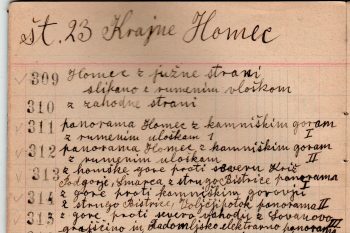 št. 23 Krajne Homec
309 Homec z južne strani
slikano z rumenim vloškom
310 z zahodne strani
311 panorama Homec z kamniškim goram
z rumenim vloškam I I
312 panorama Homec z kamniškim goram
z rumenim vloškam II
313 z homške gore proti severu Križ
Podgorje, Šmarca z strugo Bistrice panorama
314 z gore proti kamniškim I
z strugo Bistrice, Volčjipotok panorama II
315 z gore proti severo vshodu z
graščino in Radomljsko elektrarno panorama III